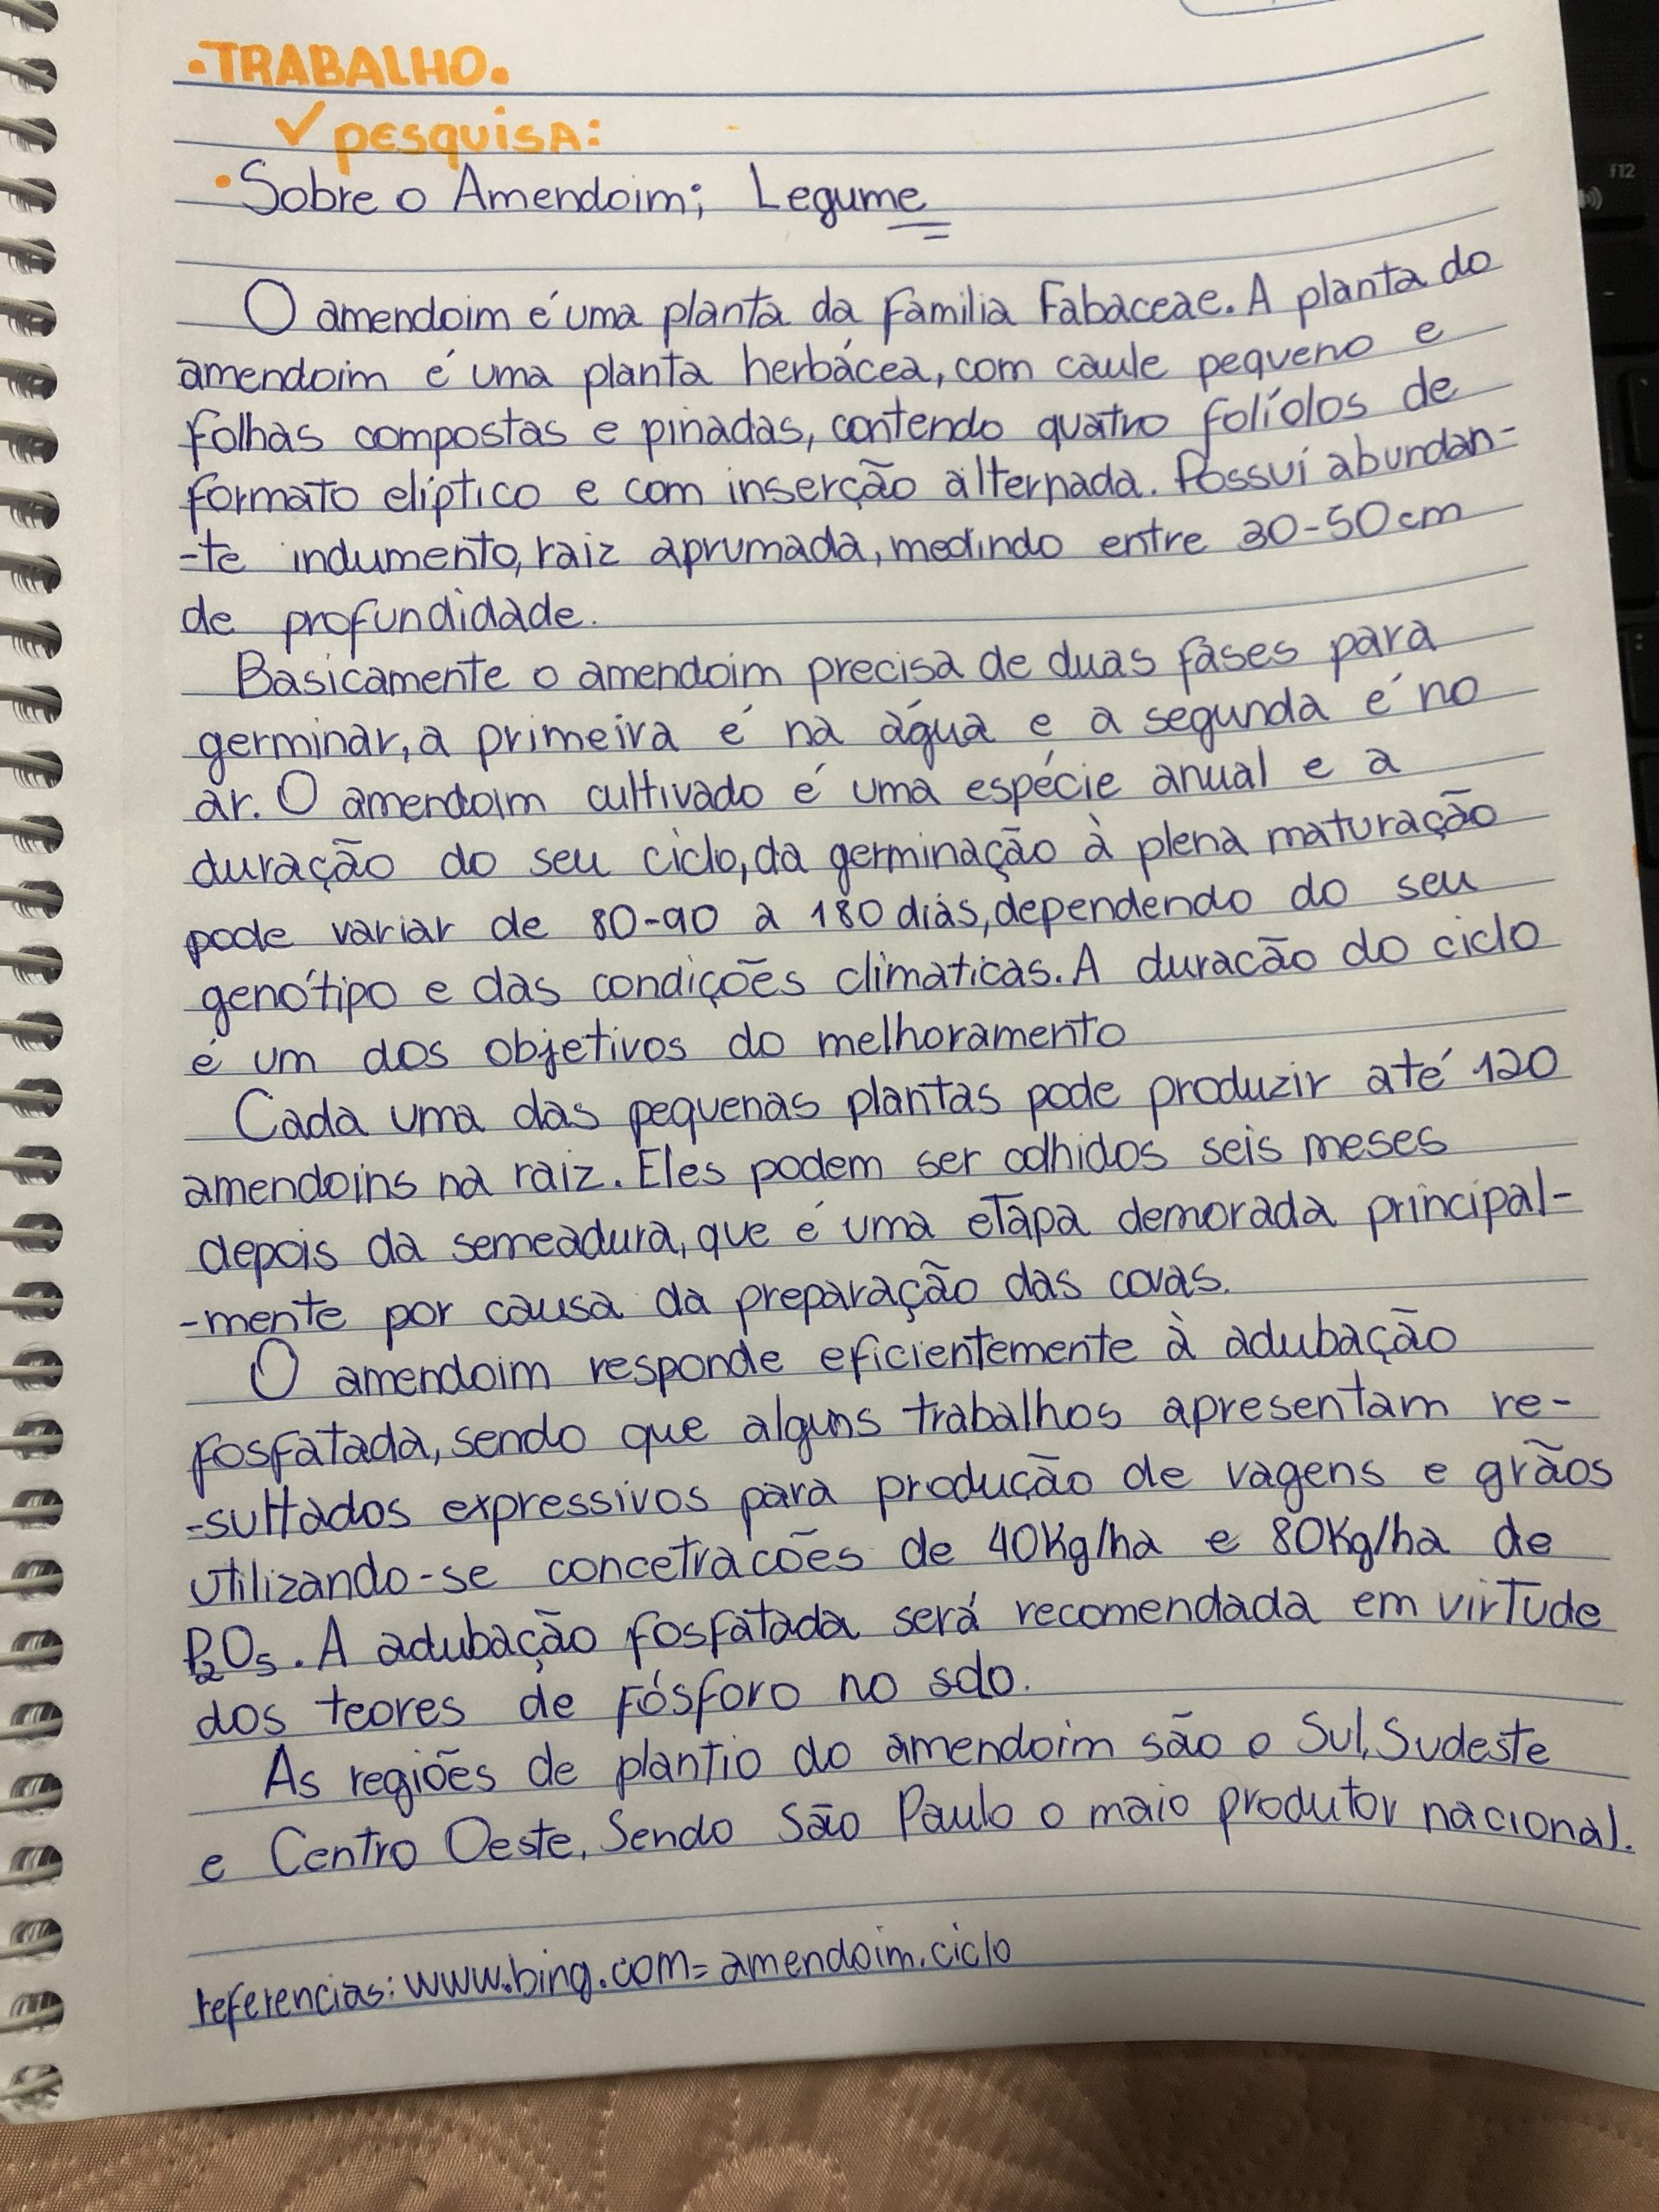 •TRABALHO.
✓ pesquisa:
• Sobre o Amendoim; Legume
O amendoim é uma planta da familia Fabaceae. A planta do
amendoim é uma planta herbácea, com caule pequeno e
folhas compostas e pinadas, contendo quatro folíolos de
formato elíptico e com inserção alternada. Possui abundan-
-te indumento, raiz aprumada, medindo entre 30-50cm
de profundidade.
Basicamente o amendoim precisa de duas fases para
germinar, a primeira é na água e a segunda é no
ar. O amendoim cultivado é uma espécie anual e a
duração do seu ciclo, da germinação à plena maturação
pode variar de 80-90 a 180 dias, dependendo do seu
genótipo e das condições climaticas. A duracão do ciclo
é um dos objetivos do melhoramento
Cada uma das pequenas plantas pode produzir até 120
amendoins na raiz. Eles podem ser colhidos seis meses
depois da semeadura, que é uma etapa demorada principal-
-mente por causa da preparação das covas.
O amendoim responde eficientemente à adubação
fosfatada, sendo que alguns trabalhos apresentam re-
-sultados expressivos para produção de vagens e grãos
utilizando-se concetracões de 40Kg/ha e 80Kg/ha de
P2O5. A adubação fosfatada será recomendada em virtude
dos teores de fósforo no solo.
As regiões de plantio do amendoim são o Sul, Sudeste
e Centro Oeste, Sendo São Paulo o maio produtor nacional.
referencias: www.bing.com=amendoim.ciclo
F12